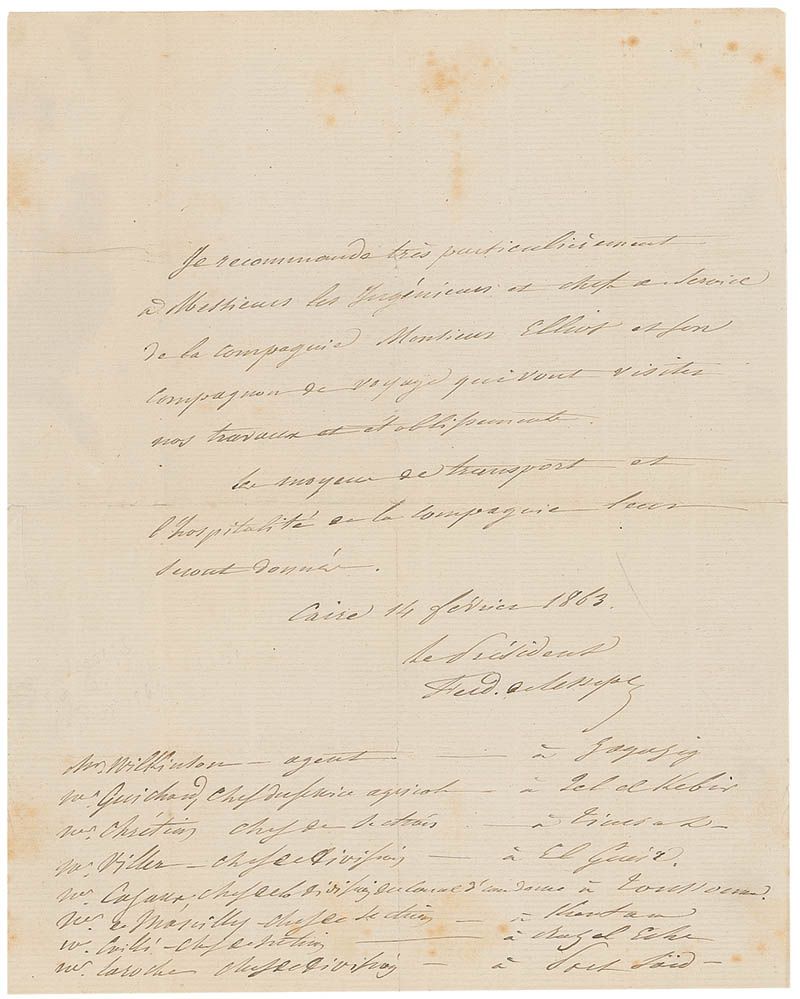 Je recommande très particulièrement
à Messieurs les Ingénieurs et chefs de service
de la Compagnie Monsieur Elliot et son
compagnon de voyage qui vont visiter
nos travaux et établissements.
Les moyens de transport et
l'hospitalité de la Compagnie leur
seront donnés.
Caire 14 février 1863.
Le Président
Ferd. de Lesseps
Mr. Wilkinson — agent — à Zagazig
Mr. Guichard, chef du service agricole — à Tel el Kebir
Mr. Chrétien chef de section — à Timsah —
Mr. Viller — chef de division — à El Guisr.
Mr. Cazaux, chef de la division du canal d'eau douce à Toussoum.
Mr. de Marcilly — chef de section — à Kantara
Mr. — chef de section — à Raz el Eche
Mr. Laroche chef de division — à Port Saïd —